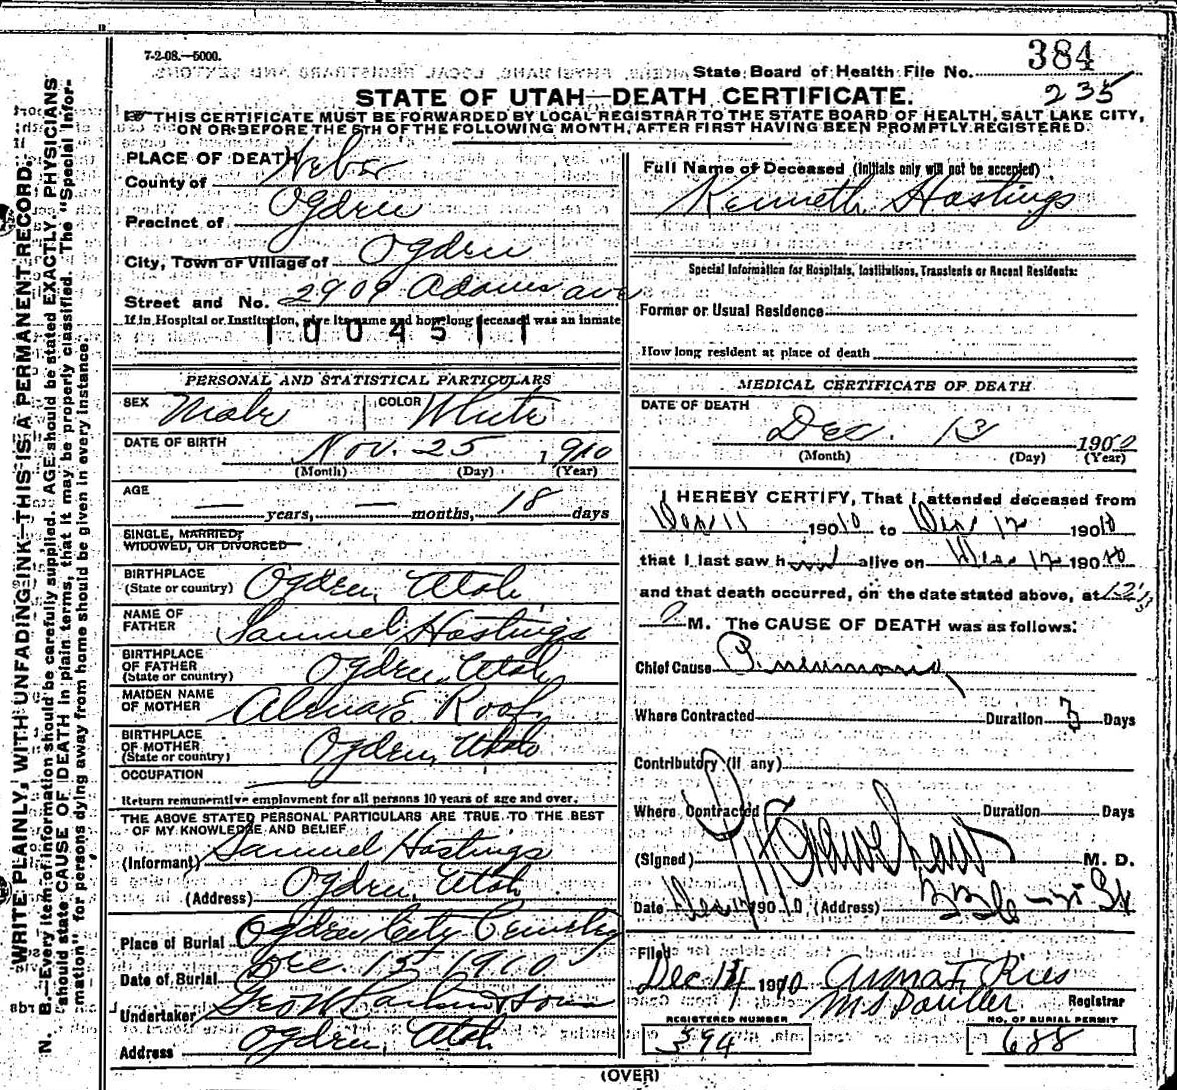 7-2-08.—5000.
State Board of Health File No. 384
235
STATE OF UTAH—DEATH CERTIFICATE.
THIS CERTIFICATE MUST BE FORWARDED BY LOCAL REGISTRAR TO THE STATE BOARD OF HEALTH, SALT LAKE CITY,
ON OR BEFORE THE 5TH OF THE FOLLOWING MONTH, AFTER FIRST HAVING BEEN PROMPTLY REGISTERED.
PLACE OF DEATH
County of Weber
Precinct of Ogden
City, Town or Village of Ogden
Street and No. 2909 Adams ave
If in Hospital or Institution, give its name and how long deceased was an inmate
1004511
PERSONAL AND STATISTICAL PARTICULARS
SEX Male COLOR White
DATE OF BIRTH Nov. 25 1910
(Month) (Day) (Year)
AGE
— years, — months, 18 days
SINGLE, MARRIED,
WIDOWED, OR DIVORCED
BIRTHPLACE
(State or country) Ogden, Utah
NAME OF
FATHER Samuel Hastings
BIRTHPLACE
OF FATHER
(State or country) Ogden, Utah
MAIDEN NAME
OF MOTHER E Roof
BIRTHPLACE
OF MOTHER
(State or country) Ogden, Utah
OCCUPATION
Return remunerative employment for all persons 10 years of age and over.
THE ABOVE STATED PERSONAL PARTICULARS ARE TRUE TO THE BEST
OF MY KNOWLEDGE AND BELIEF
(Informant) Samuel Hastings
(Address) Ogden, Utah
Place of Burial Ogden City Cemetery
Date of Burial Dec. 15 1910
Undertaker Geo W Larkin & Sons
Address Ogden, Utah
Full Name of Deceased (Initials only will not be accepted)
Kenneth Hastings
Special Information for Hospitals, Institutions, Transients or Recent Residents:
Former or Usual Residence
How long resident at place of death
MEDICAL CERTIFICATE OF DEATH
DATE OF DEATH
Dec. 13 190
(Month) (Day) (Year)
I HEREBY CERTIFY, That I attended deceased from
Dec 11 19010 to Dec 12 19010
that I last saw him alive on Dec 12 19010
and that death occurred, on the date stated above, at
a M. The CAUSE OF DEATH was as follows:
Chief Cause Pneumonia
Where Contracted Duration 3 Days
Contributory (if any)
Where Contracted Duration Days
(Signed) M. D.
Date Dec 19010 (Address)
Filed
Dec 14 1910
Registrar
REGISTERED NUMBER NO. OF BURIAL PERMIT
394 688
(OVER)
WRITE PLAINLY, WITH UNFADING INK—THIS IS A PERMANENT RECORD.
N. B.—Every item of information should be carefully supplied. AGE should be stated EXACTLY. PHYSICIANS
should state CAUSE OF DEATH in plain terms, that it may be properly classified. The "Special Infor-
mation" for persons dying away from home should be given in every instance.